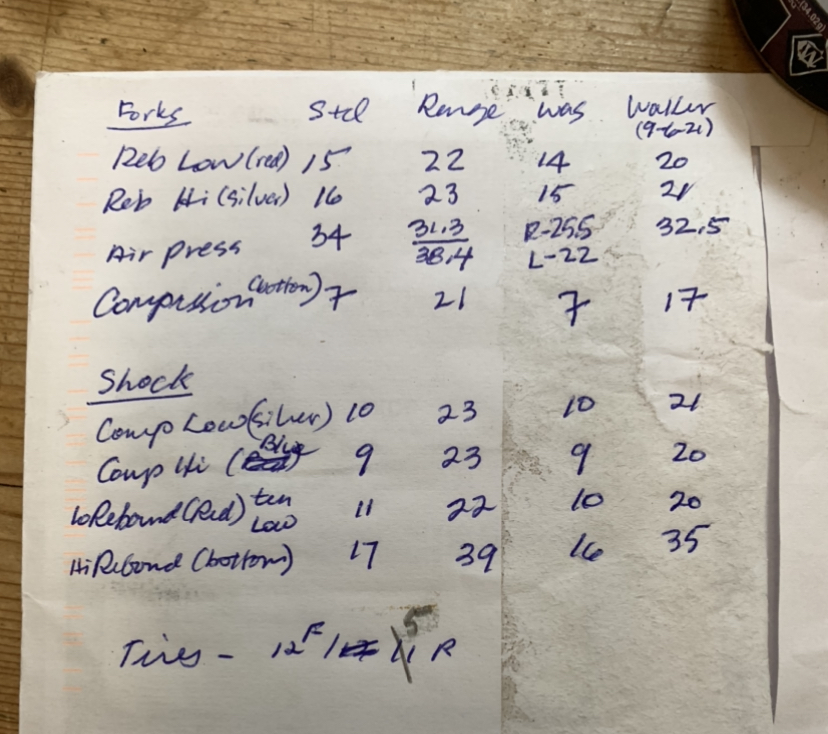 Forks Std Range was Walker
(9-6-21)
Reb Low (red) 15 22 14 20
Reb Hi (silver) 16 23 15 21
Air Press 34 31.3 R-25.5 32.5
38.4 L-22
Compression (bottom) 7 21 7 17
Shock
Comp Low (silver) 10 23 10 21
Comp Hi (Blue) 9 23 9 20
LoRebound (Red) 11 22 10 20
Low
HiRebound (bottom) 17 39 16 35
Tires - 12 F / 11 5 R